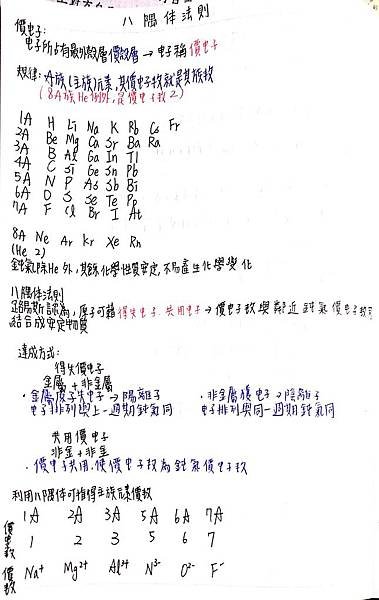 八隅体法則
價电子:
电子所占有最外殼層價殼層→电子稱價电子
規律:A族(主族)元素,其價电子数就是其族数
(8A族He例外,是價电子数2)
1A H Li Na K Rb Cs Fr
2A Be Mg Ca Sr Ba Ra
3A B Al Ga In Tl
4A C Si Ge Sn Pb
5A N P As Sb Bi
6A O S Se Te Po
7A F Cl Br I At
8A Ne Ar Kr Xe Rn
(He 2)
鈍氣除He外,其餘化學性質安定,不易產生化學变化
八隅体法則
路易斯認為,原子可藉得失电子、共用电子→價电子数與鄰近鈍氣價电子数同
結合成安定物質
達成方式:
得失價电子
金屬+非金屬
·金屬原子失电子→陽離子 ·非金屬獲电子→陰離子
电子排列與上一週期鈍氣同 电子排列與同一週期鈍氣同
共用價电子
非金+非金
·價电子共用,使價电子数為鈍氣價电子数
利用八隅体可推得主族元素價数
1A 2A 3A 5A 6A 7A
價电数 1 2 3 5 6 7
價数 Na⁺ Mg²⁺ Al³⁺ N³⁻ O²⁻ F⁻